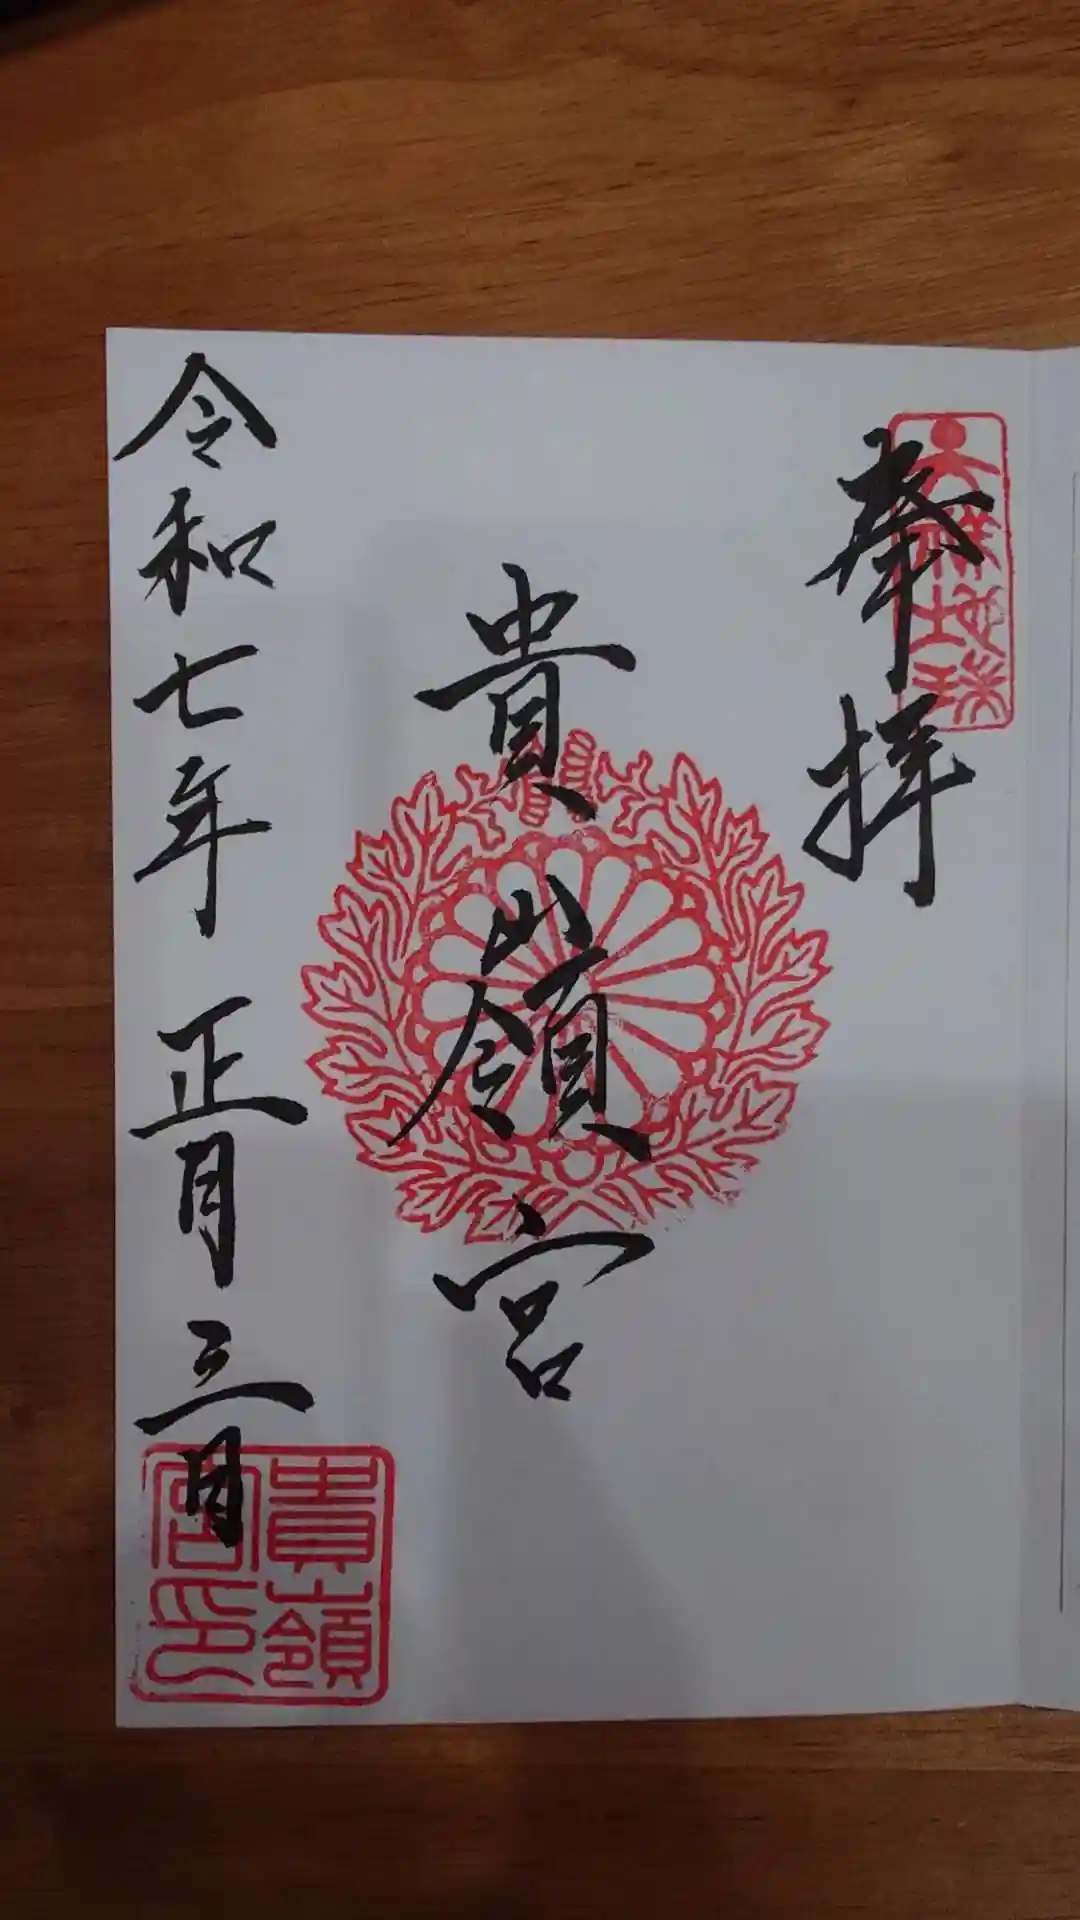 奉拝
貴嶺宮
令和七年 正月三日
貴嶺
宮印